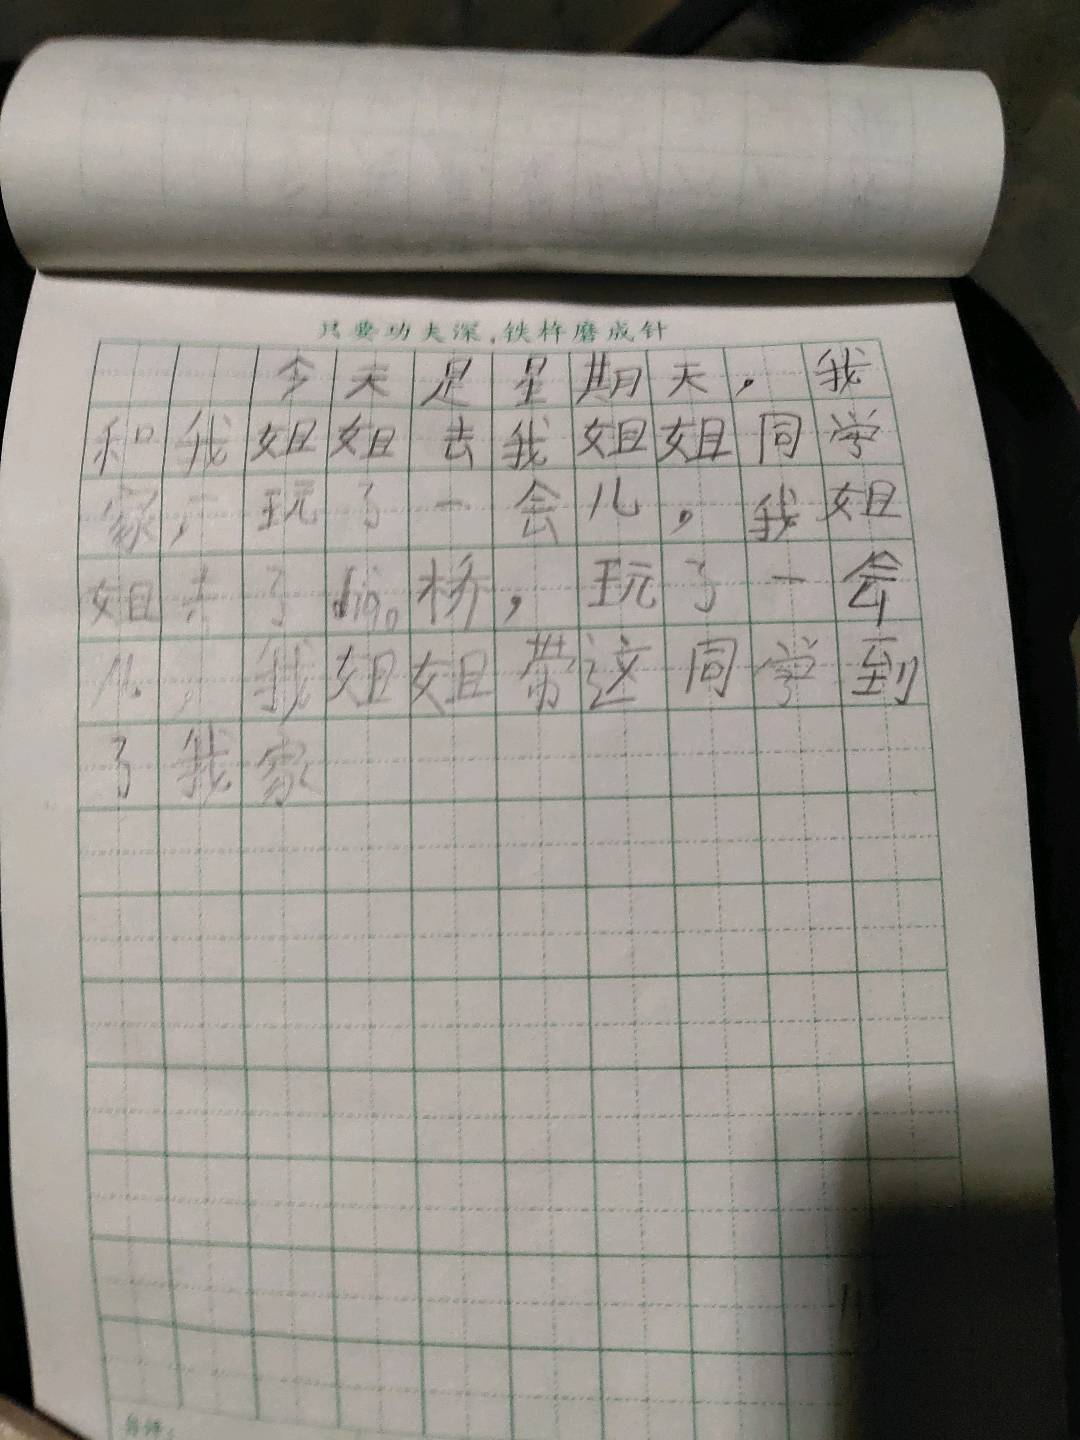 只要功夫深,铁杵磨成针
今天是星期天,我
和我姐姐去我姐姐同学
家,玩了一会儿,我姐
姐去了桥,玩了一会
儿,我姐姐带这同学到
了我家